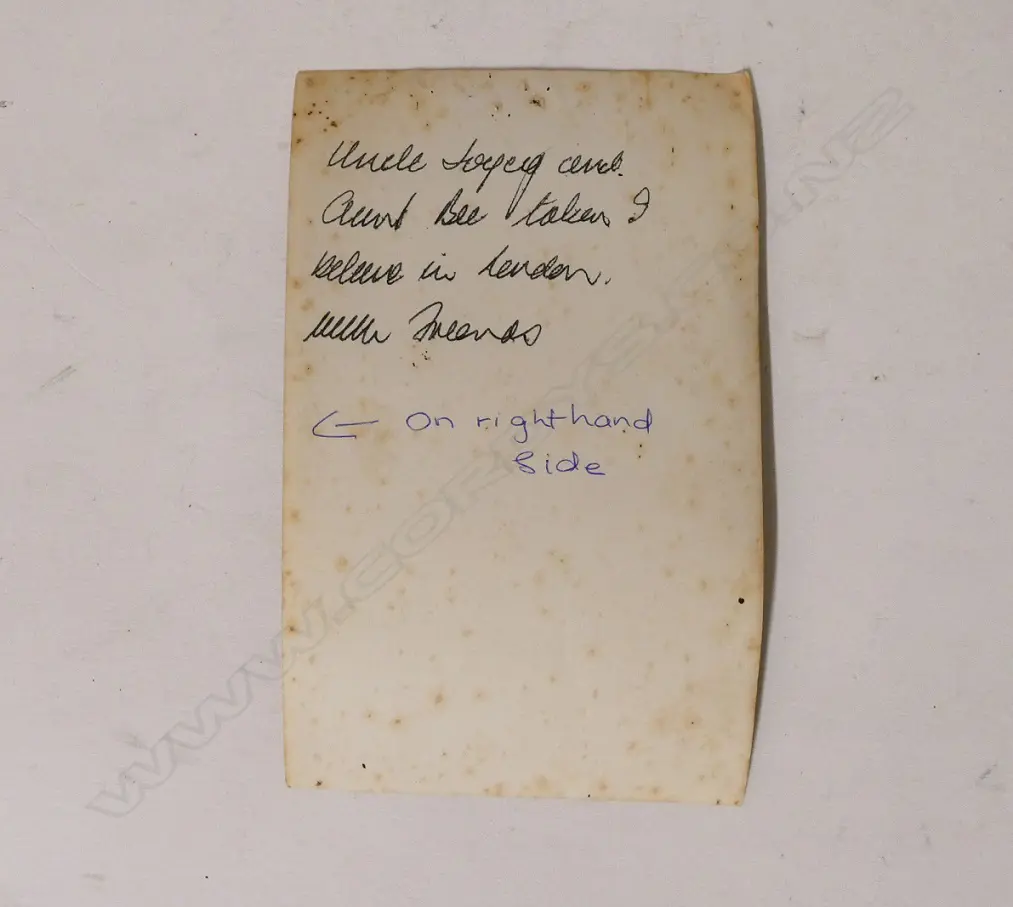 Uncle and
Aunt Bee taken I
believe in London.
With Friends
← On righthand
Side
WWW.CORDYS.CO.NZ